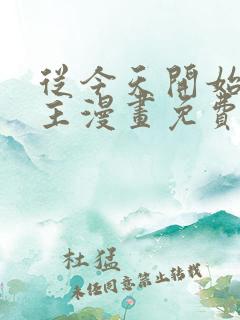 從今天開始
王漫畫免費
杜猛
未经同意禁止转载